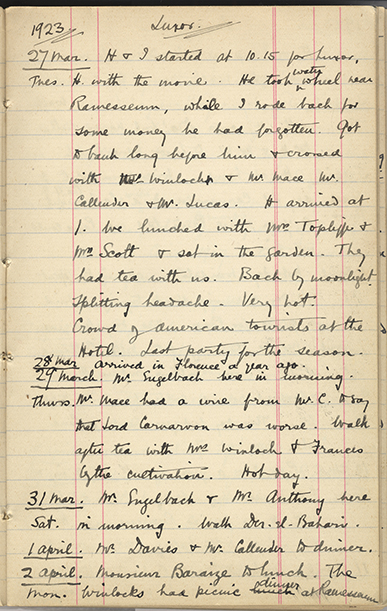 1923 Luxor.
27 Mar. H & I started at 10.15 for Luxor,
Tues. H. with the movie. He took water wheel near
Ramesseum, while I rode back for
some money he had forgotten. Got
to bank long before him & crossed
with Winlock & Mr Mace Mr.
Callender & Mr. Lucas. H arrived at
1. We lunched with Mrs Topliffe &
Mrs Scott & sat in the garden. They
had tea with us. Back by moonlight.
Splitting headache. Very hot.
Crowd of American tourists at the
Hotel. Last party for the season.
28 Mar arrived in Florence a year ago.
29 March. Mr. Engelbach here in morning.
Thurs. Mr. Mace had a wire from Mr. C. to day
that Lord Carnarvon was worse. Walk
after tea with Mrs Winlock & Frances
by the cultivation. Hot day.
31 Mar. Mr. Engelbach & Mr. Anthony here
Sat. in morning. Walk Der-el-Bahari.
1 April. Mr. Davies & Mr. Callender to dinner.
2 April. Monsieur Baraize to lunch. The
Mon. Winlocks had picnic lunch dinner at Ramesseum